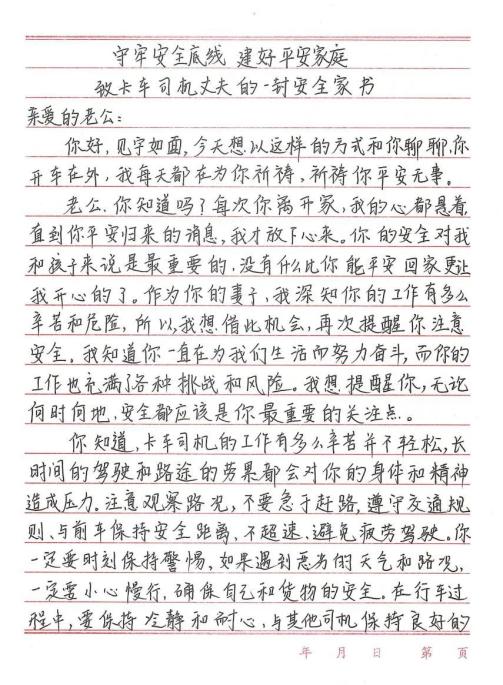 守牢安全底线 建好平安家庭
致卡车司机丈夫的一封安全家书
亲爱的老公：
你好，见字如面，今天想以这样的方式和你聊聊，你
开车在外，我每天都在为你祈祷，祈祷你平安无事。
老公，你知道吗？每次你离开家，我的心都悬着，
直到你平安归来的消息，我才放下心来。你的安全对我
和孩子来说是最重要的，没有什么比你能平安回家更让
我开心的了。作为你的妻子，我深知你的工作有多么
辛苦和危险，所以，我想借此机会，再次提醒你注意
安全。我知道你一直在为我们生活而努力奋斗，而你的
工作也充满了各种挑战和风险。我想提醒你，无论
何时何地，安全都应该是你最重要的关注点。
你知道，卡车司机的工作有多么辛苦并不轻松，长
时间的驾驶和路途的劳累都会对你的身体和精神
造成压力。注意观察路况，不要急于赶路，遵守交通规
则、与前车保持安全距离，不超速、避免疲劳驾驶。你
一定要时刻保持警惕，如果遇到恶劣的天气和路况，
一定要小心慢行，确保自己和货物的安全。在行车过
程中，要保持冷静和耐心，与其他司机保持良好的
年 月 日 第 页